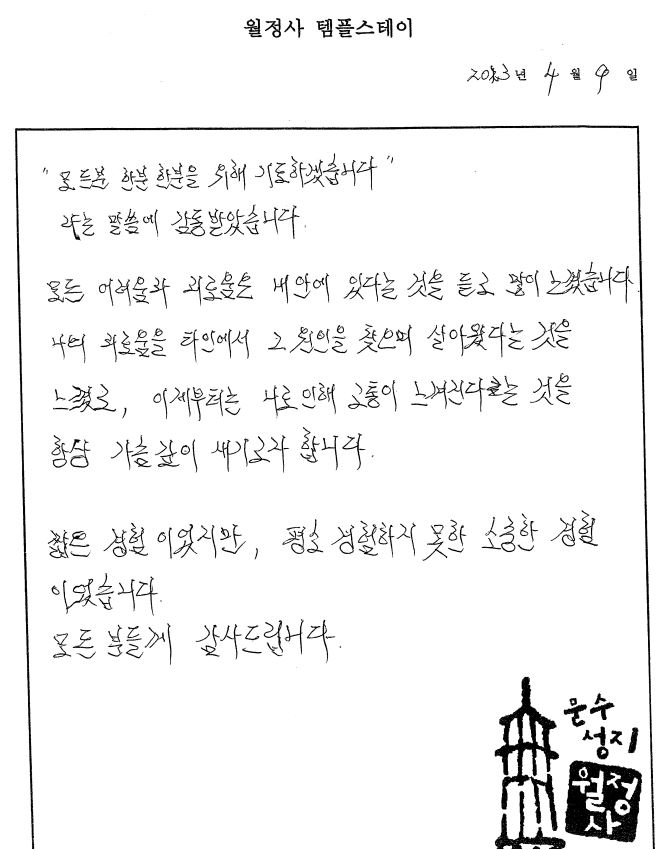 월정사 템플스테이
2013년 4월 9일
"모든분 한분한분을 위해 기도하겠습니다"
라는 말씀에 감동받았습니다.
모든 어려움과 괴로움은 내안에 있다는 것을 듣고 많이 느꼈습니다.
나의 괴로움을 타인에서 그 원인을 찾으며 살아왔다는 것을
느꼈고, 이제부터는 나로인해 고통이 느껴진다는 것을
항상 가슴깊이 새기고자 합니다.
짧은 경험이었지만, 평소 경험하지 못한 소중한 경험
이었습니다.
모든 분들께 감사드립니다.
문수
성지
월정
사